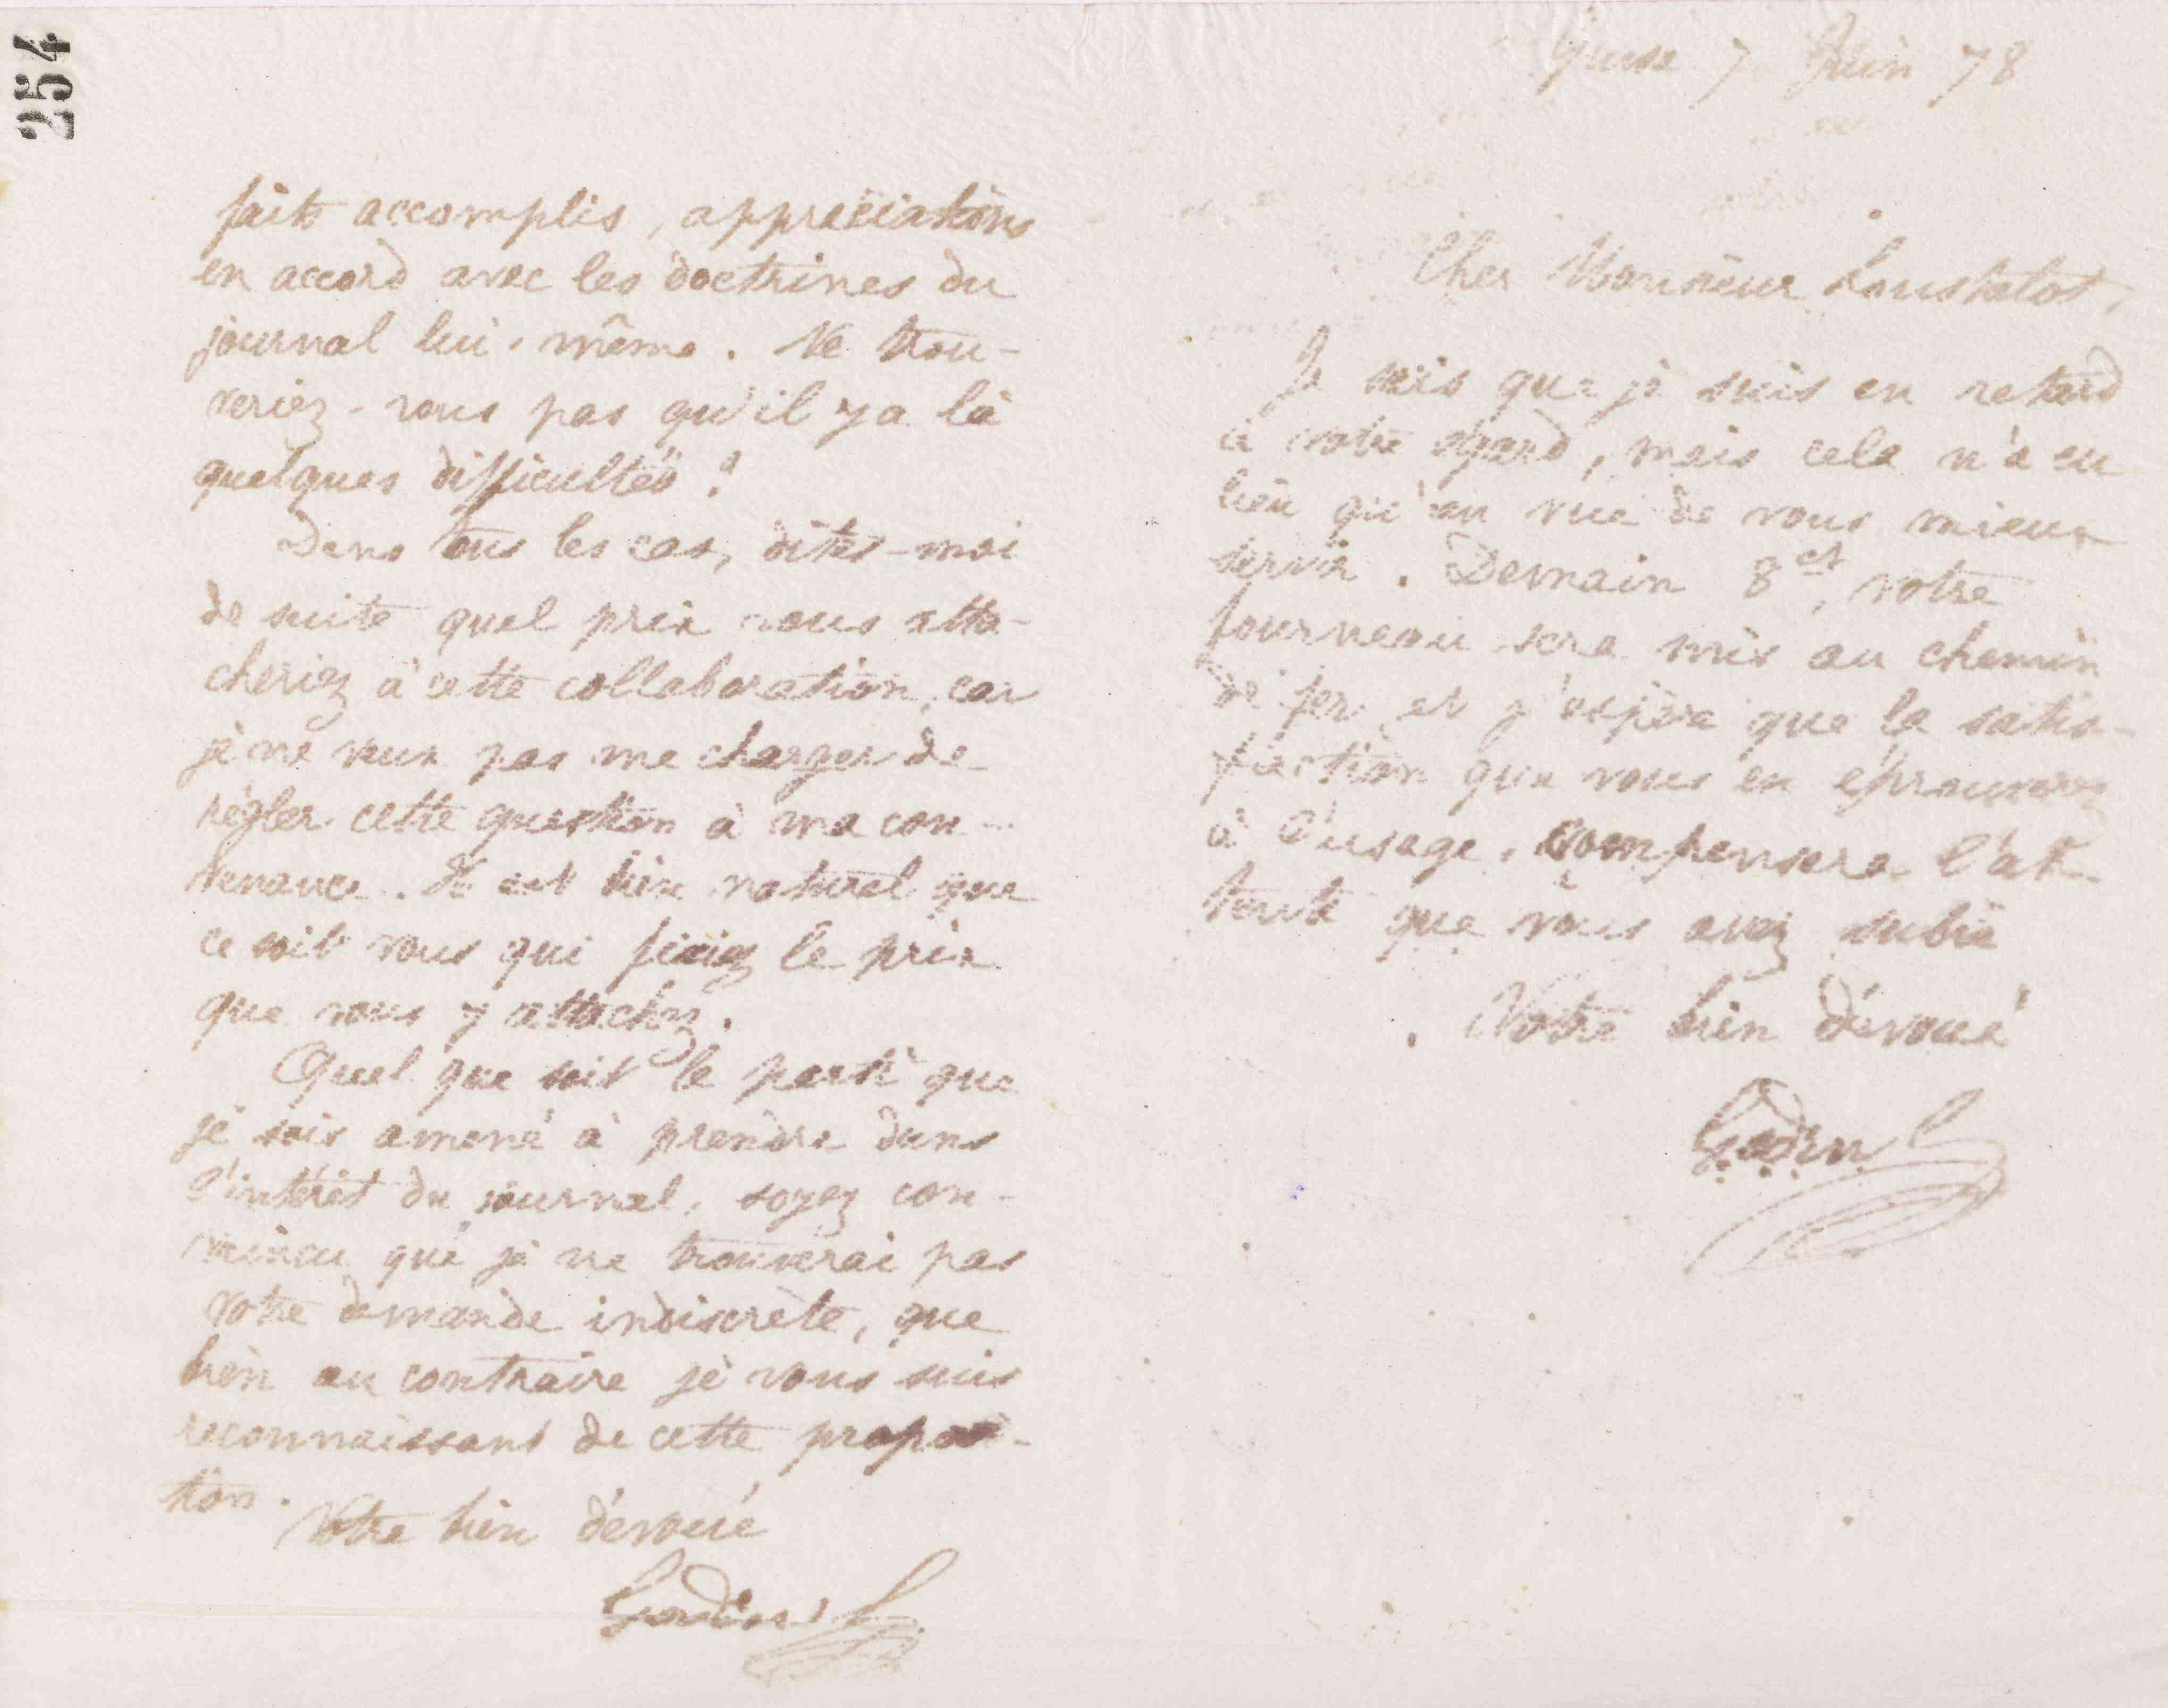 254
faits accomplis, appréciations
en accord avec les doctrines du
journal lui-même. Ne trou-
veriez-vous pas qu'il y a là
quelques difficultés ?
Dans tous les cas, dites-moi
de suite quel prix vous atta-
cheriez à cette collaboration, car
je ne veux pas me charger de
régler cette question à ma con-
venance. Il est bien naturel que
ce soit vous qui fixiez le prix
que vous y attachez.
Quel que soit le parti que
je sois amené à prendre dans
l'intérêt du journal, soyez con-
vaincu que je ne trouverai pas
votre demande indiscrète, que
bien au contraire je vous suis
reconnaissant de cette proposi-
tion.
Votre bien dévoué
Godin
Guise 7 Juin 78
Cher Monsieur Loustalot,
Je sais que je suis en retard
à votre égard, mais cela n'a eu
lieu qu'en vue de vous mieux
servir. Demain 8 ct, votre
fourneau sera mis au chemin
de fer et j'espère que la satis-
faction que vous en éprouverez
à l'usage, compensera l'at-
tente que vous avez subie
Votre bien dévoué
Godin